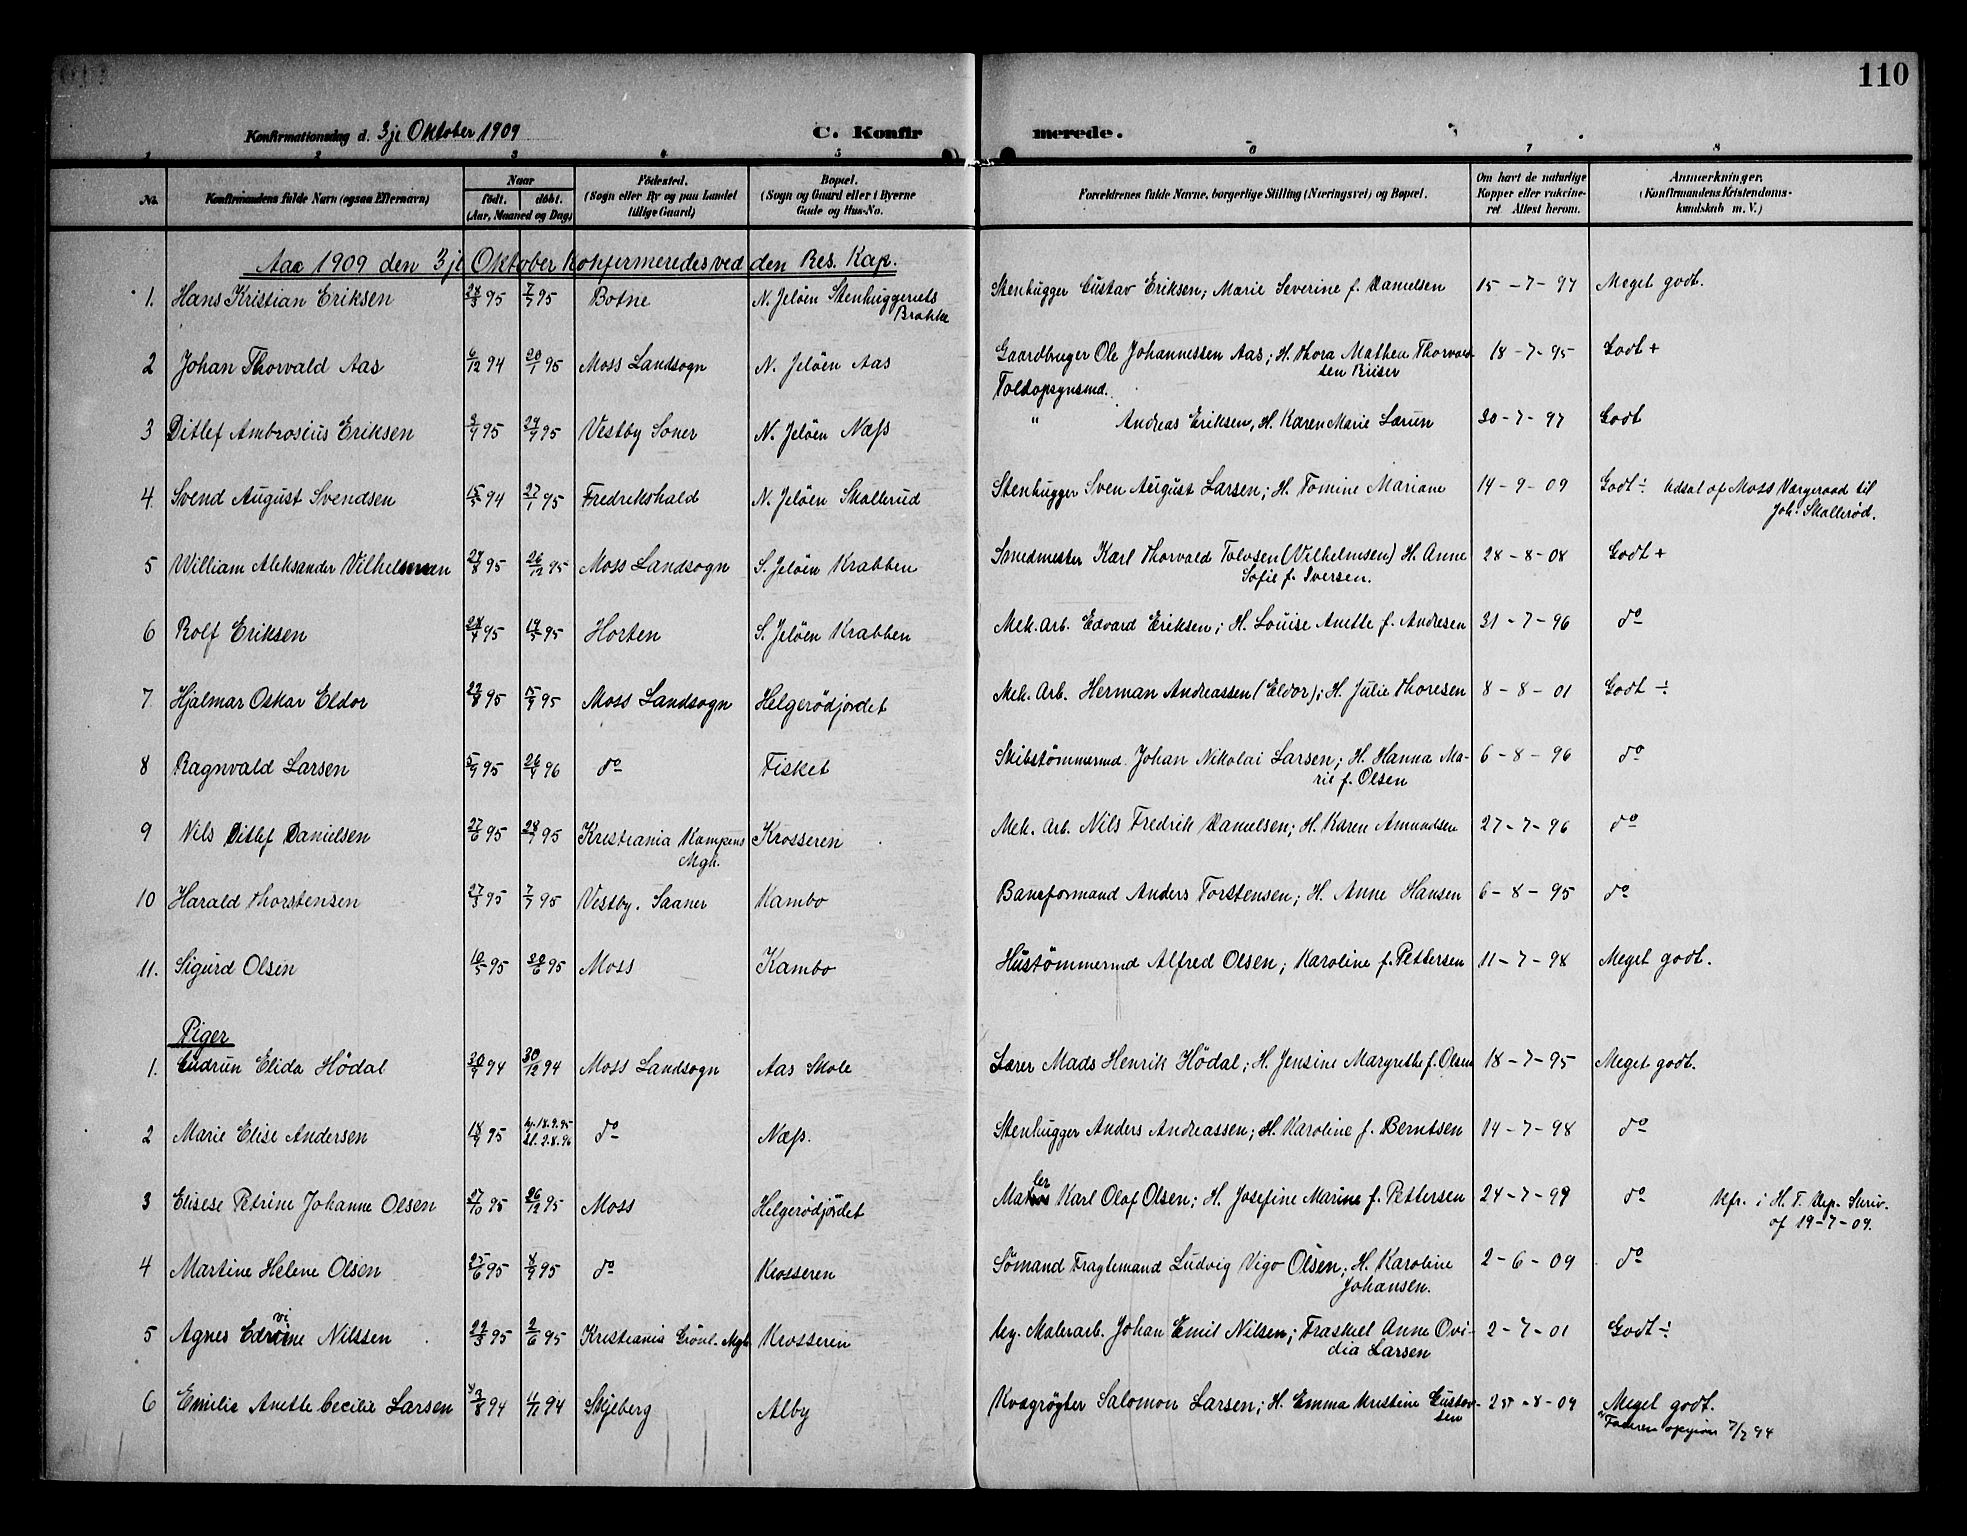 110
Konfirmationsdag d. 3je Oktober 1909 C. Konfirmerede.
1 2 3 4 5 6 7 8
No. Konfirmandens fulde Navn (ogsaa Efternavn) Naar født. døbt. (Aar, Maaned og Dag) Fødested. (Sogn eller By og paa Landet tillige Gaard) Bopæl. (Sogn og Gaard eller i Byerne Gade og Hus-No. Forældrenes fulde Navne, borgerlige Stilling (Næringsvei) og Bopæl. Om havt de naturlige Kopper eller vaksineret Attest herom. Anmærkninger, (Konfirmandens Kristendomskundskab m. V.)
Aar 1909 den 3je Oktober konfirmeredes ved den Res. Kap.
1. Hans Kristian Eriksen 95 7/7 95 Botne N. Jeløen Stenhuggeriets Brakke Stenhugger Gustav Eriksen; Marie Severine f. Danielsen 15-7-97 Meget godt.
2 Johan Thorvald Aas 6/12 94 20/1 95 Moss Landsogn N. Jeløen Aas Gaardbruger Ole Johannessen Aas; H. Thora Mathea Thorvaldsen
Toldopsynsmd.
3 Ditlef Ambrosius Eriksen 95 95 Vestby Soner N. Jeløen Næss " Andreas Eriksen, H. Karen Marie Lærun 30-7-97 Godt
4. Svend August Svendsen 94 27/1 95 Fredrikshald N. Jeløen Skallerud Stenhugger Sven August Larsen; H. Tomine Mariane 14-9-09 Godt ÷ Udsat af Moss Værgeraad til
Joh. Skallerød.
5 William Aleksander Vilhelmsen 95 26/12 95 Moss Landsogn S. Jeløen Krabben Smedmester Karl Thorvald Tolvsen (Vilhelmsen) H. Anne 28-8-08 Godt +
Sofie f. Iversen.
6 Rolf Eriksen 95 95 Horten S. Jeløen Krabben Mek. Arb. Edvard Eriksen; H. Louise Anette f. Andresen 31-7-96 do
7 Hjalmar Oskar Eldor 95 15/9 95 Moss Landsogn Helgerødjordet Mek. Arb. Herman Andreassen (Eldor); H. Julie Thoresen 8-8-01 Godt ÷
8 Ragnvald Larsen 5/9 95 26/4 96 do Fisket Skibstømmermd. Johan Nikolai Larsen; H. Hanna Ma- 6-8-96 do
rie f. Olsen
9 Nils Ditlef Danielsen 27/6 95 28/7 95 Kristiania Kampens Mgh. Krosseren Mek. Arb. Nils Fredrik Danielsen; H. Karen Amundsen 27-7-96 do
10 Harald Thorstensen 95 7/7 95 Vestby. Saaner Kambo Baneformand Anders Torstensen; H. Anne Hansen 6-8-95 do
11. Sigurd Olsen 10/5 95 30/6 95 Moss Kambo Hustømmermd Alfred Olsen; Karoline f. Pettersen 11-7-98 Meget godt.
Piger
1. Gudrun Elida Hödal 94 30/12 94 Moss Landsogn Aas Skole Lærer Mads Henrik Hödal; H. Jensine Margrethe f. Olsen 18-7-95 Meget godt.
2 Marie Elise Andersen 95 hj. 18.9.95 do Næss. Stenhugger Anders Andreassen; H. Karoline f. Berntsen 14-7-98 do
3 Elisese Petrine Johanne Olsen 27/10 95 26/12 95 Moss Helgerødjordet Maler Karl Olaf Olsen; H. Josefine Marine f. Pettersen 24-7-99 do
af 19-7-09.
4 Martine Helene Olsen 25/6 95 8/9 95 do Krosseren Sömand Fragtemand Ludvig Vigo Olsen; H. Karoline 2-6-09 do
Johansen.
5 Agnes Edvine Nilssen 22/3 95 2/6 95 Kristiania Grönl. Mgh. Krosseren Ug. Malerarb. Johan Emil Nilsen; Fraskil Anne Ovi- 2-7-01 Godt ÷
dia Larsen
6 Emilie Anette Cecilie Larsen 94 4/11 94 Skjeberg Alby Kvægrögter Salomon Larsen; H. Emma Kristine Gustav- 25-8-09 Meget godt.
sen